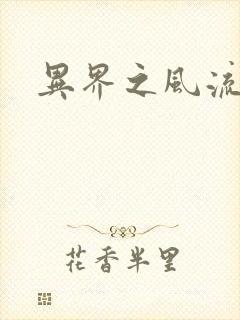 異界之風流
花香半里